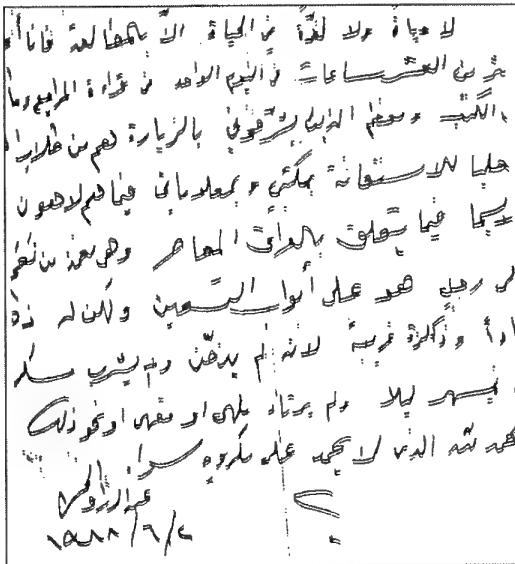 لا حياة ولا لذة في الحياة الا بالمطالعة فانا أ
من العشر ساعات في اليوم الواحد في قراءة المراجع وما
الكتب ومعظم الذين يشرفوني بالزيارة هم من طلاب ا
طلبا للاستعانة بمكتبتي وبمعلوماتي فيما هم لاهون
لاسيما فيما يتعلق بالعراق المعاصر وهي نعمة من نعم
على رجل هو على أبواب التسعين ولكن له ذه
وذاكرة قوية لانه لم يدخن ولم يشرب مسكر
يسهر ليلا ولم يرتاد ملهى او مقهى او نحو ذلك
الحمد لله الذي لا يحمد على مكروه سواه
عبد الرزاق الحسني
١٩٨٨/٦/٢